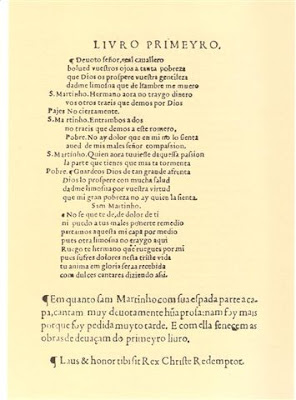 LIVRO PRIMEYRO.
¶ Deuoto señor, real cauallero
bolued vuestros ojos a tanta pobreza
que Dios os prospere vuestra gentileza
dadme limosna que de hambre me muero
S. Martinho. Hermano aora no traygo dinero
vos otros traeis que demos por Dios
Pajes No ciertamente.
S. Martinho. Entrambos a dos
no traeis que demos a este romero,
Pobre. No ay dolor que en mi no lo sienta
aued de mis males señor compassion.
S. Martinho. Quien aora tuuiesse daquessa passion
la parte que tienes que mas te tormenta
Pobre. ¶ Guardeos Dios de tan grande afrenta
Dios lo prospere con mucha salud
dadme limosna por vuestra virtud
que mi gran pobreza no ay quien la sienta.
Sam Martinho.
¶ No se que te de, de dolor de ti
ni puedo a tus males ponerte remedio
partamos aquesta mi capa por medio
pues otra limosna no traygo aqui
Ruego te hermano que ruegues por mi
pues sufres dolores nesta triste vida
tu anima em gloria sera recebida
con dulces cantares diziendo assi.
¶ Em quanto sam Martinho com sua espada parte a ca-
pa, cantam muy deuotamente hũa prosa: nam foy mais
porque foy pedida muyto tarde. E com ella fenecem as
obras de deuaçam do primeyro liuro.
¶ Laus & honor tibi sit Rex Christe Redemptor.